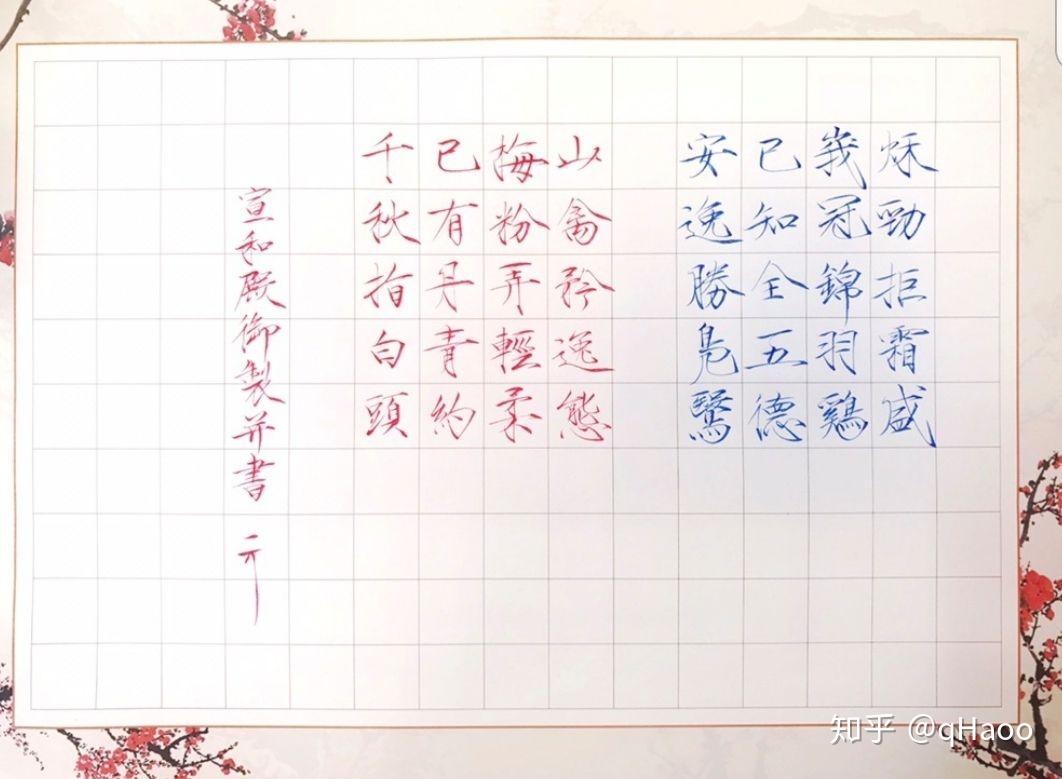 秋勁拒霜盛
峩冠錦羽鷄
已知全五德
安逸勝鳧鷖
山禽矜逸態
梅粉弄輕柔
已有丹青約
千秋指白頭
宣和殿御製并書
知乎 @qHaoo